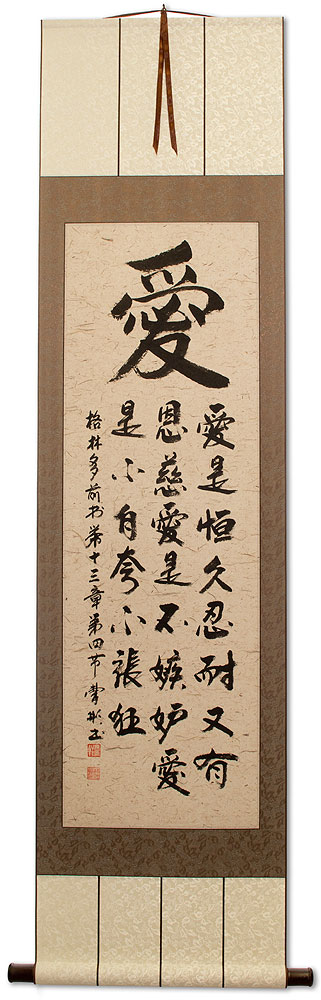 愛
愛是恒久忍耐又有
恩慈愛是不嫉妒愛
是不自夸不張狂
格林多前书第十三章第四节